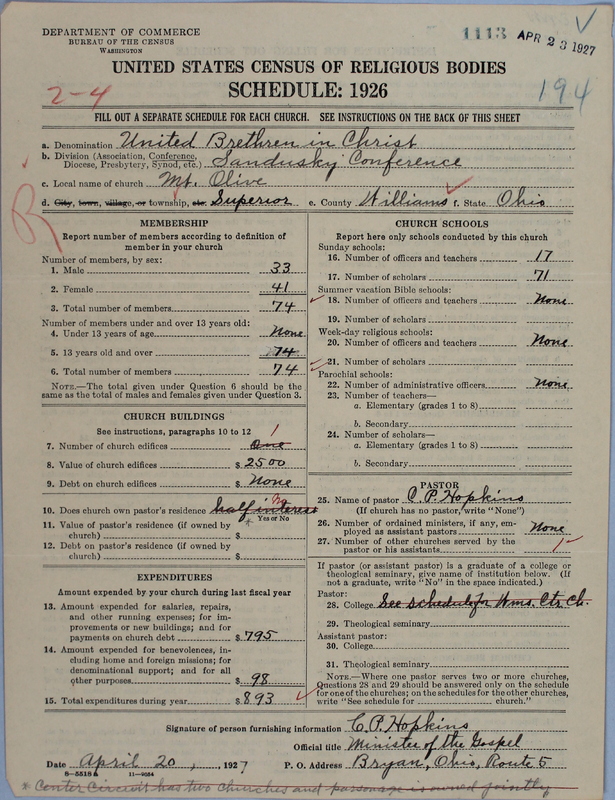 DEPARTMENT OF COMMERCE
BUREAU OF THE CENSUS
WASHINGTON
1113 APR 23 1927
UNITED STATES CENSUS OF RELIGIOUS BODIES
SCHEDULE: 1926
2-4
194
FILL OUT A SEPARATE SCHEDULE FOR EACH CHURCH. SEE INSTRUCTIONS ON THE BACK OF THIS SHEET
a. Denomination United Brethren in Christ
b. Division (Association, Conference, Diocese, Presbytery, Synod, etc.) Sandusky Conference
c. Local name of church Mt. Olive
d. City, town, village, or township, etc. Superior e. County Williams f. State Ohio
R
MEMBERSHIP
Report number of members according to definition of
member in your church
Number of members, by sex:
1. Male 33
2. Female 41
3. Total number of members 74
Number of members under and over 13 years old:
4. Under 13 years of age None
5. 13 years old and over 74
6. Total number of members 74
NOTE.—The total given under Question 6 should be
same as the total of males and females given under Question 3.
CHURCH BUILDINGS
See instructions, paragraphs 10 to 12
7. Number of church edifices One 1
8. Value of church edifices $ 2500
9. Debt on church edifices $ None
10. Does church own pastor's residence half interest No
* Yes or No
11. Value of pastor's residence (if owned by
church) $
12. Debt on pastor's residence (if owned by
church) $
EXPENDITURES
Amount expended by your church during last fiscal year
13. Amount expended for salaries, repairs,
and other running expenses; for im-
provements or new buildings; and for
payments on church debt $ 795
14. Amount expended for benevolences, in-
cluding home and foreign missions; for
denominational support; and for all
other purposes $ 98
15. Total expenditures during year $ 893
CHURCH SCHOOLS
Report here only schools conducted by this church
Sunday schools:
16. Number of officers and teachers 17
17. Number of scholars 71
Summer vacation Bible schools:
18. Number of officers and teachers None
19. Number of scholars
Week-day religious schools:
20. Number of officers and teachers None
21. Number of scholars
Parochial schools:
22. Number of administrative officers None
23. Number of teachers—
a. Elementary (grades 1 to 8)
b. Secondary
24. Number of scholars—
a. Elementary (grades 1 to 8)
b. Secondary
PASTOR
25. Name of pastor C. P. Hopkins
(If church has no pastor, write "None")
26. Number of ordained ministers, if any, em-
ployed as assistant pastors None
27. Number of other churches served by the
pastor or his assistants 1
If pastor (or assistant pastor) is a graduate of a college or
theological seminary, give name of institution below. (If
not a graduate, write "No" in the space indicated.)
Pastor:
28. College See schedule for Wms. Ctr. Ch.
29. Theological seminary
Assistant pastor:
30. College
31. Theological seminary
NOTE.—Where one pastor serves two or more churches,
Questions 28 and 29 should be answered only on the schedule
for one of the churches; on the schedules for the other churches,
write "See schedule for church."
Signature of person furnishing information C. P. Hopkins
Official title Minister of the Gospel
Date April 20, 1927 P. O. Address Bryan, Ohio, Route 5
8—5518 a 11—9054
* Center Circuit has two churches and parsonage is owned jointly